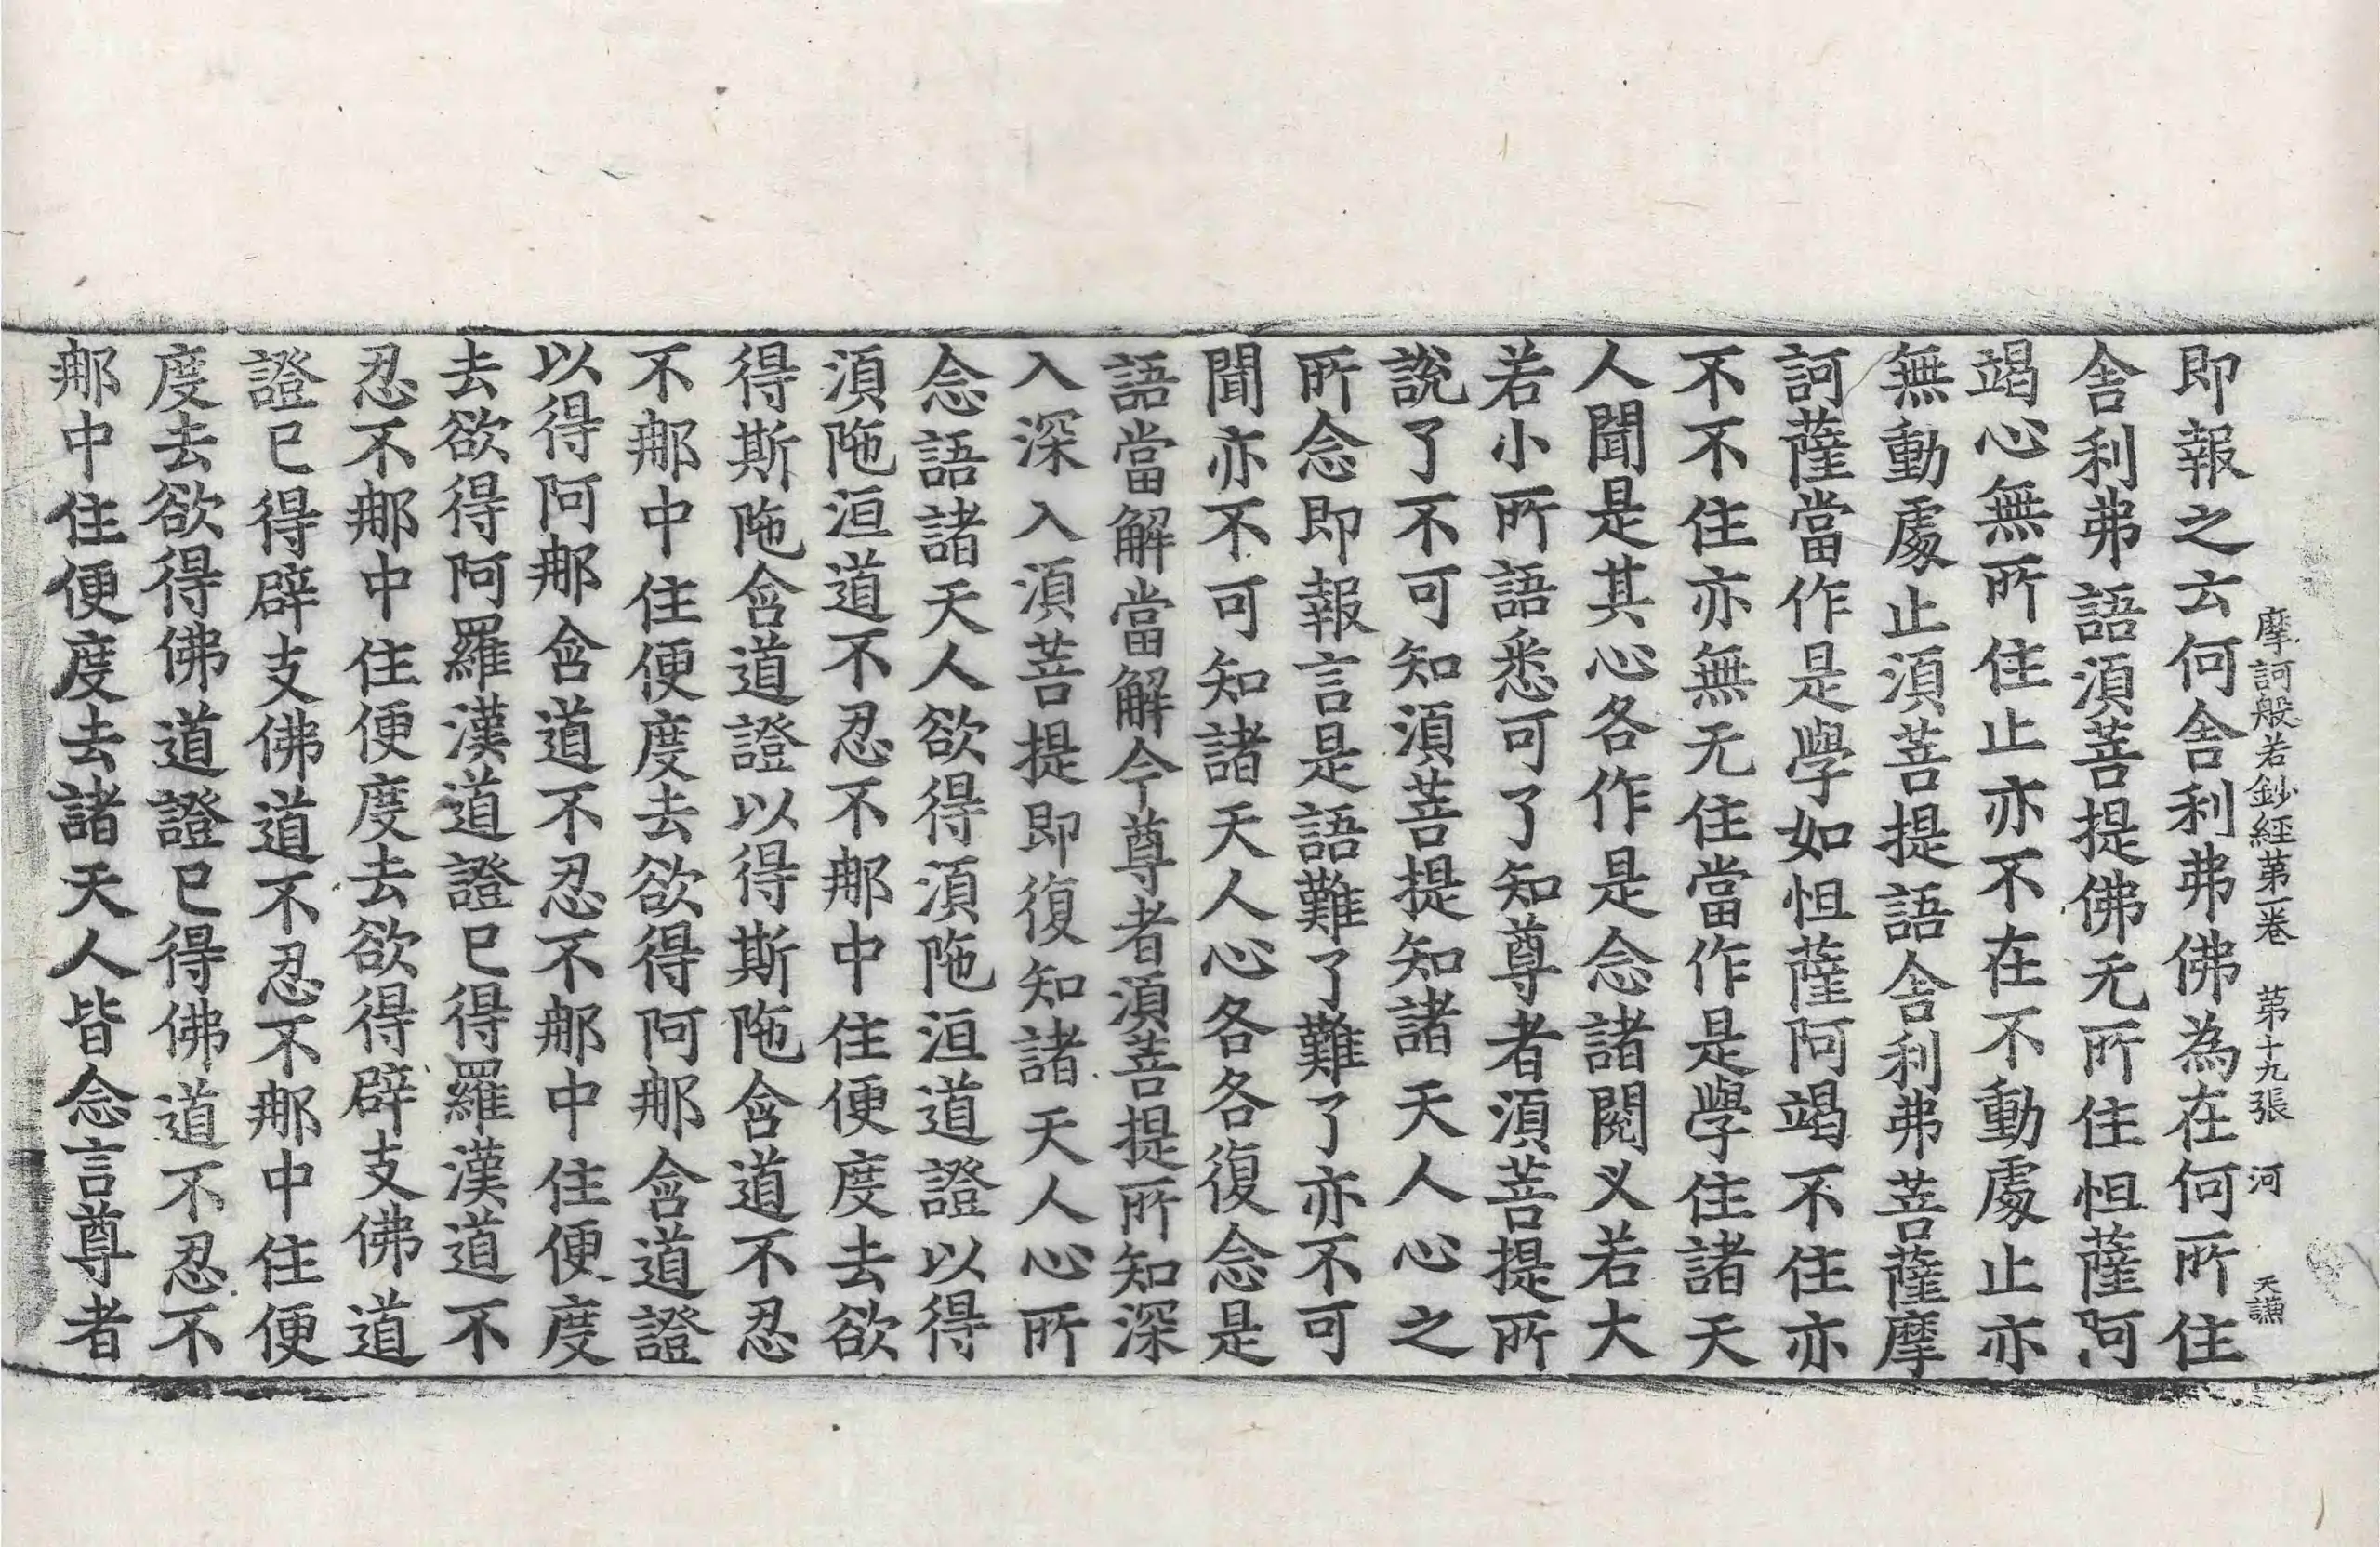 摩訶般若鈔經第一卷 第十九張 河 天譕
即報之云何舍利弗佛為在何所住
舍利弗語須菩提佛无所住怛薩阿
竭心無所住止亦不在不動處止亦
無動處止須菩提語舍利弗菩薩摩
訶薩當作是學如怛薩阿竭不住亦
不不住亦無无住當作是學住諸天
人聞是其心各作是念諸閱叉若大
若小所語悉可了知尊者須菩提所
說了不可知須菩提知諸天人心之
所念即報言是語難了難了亦不可
聞亦不可知諸天人心各各復念是
語當解當解今尊者須菩提所知深
入深入須菩提即復知諸天人心所
念語諸天人欲得須陁洹道證以得
須陁洹道不忍不那中住便度去欲
得斯陁含道證以得斯陁含道不忍
不那中住便度去欲得阿那含道證
以得阿那含道不忍不那中住便度
去欲得阿羅漢道證已得羅漢道不
忍不那中住便度去欲得辟支佛道
證已得辟支佛道不忍不那中住便
度去欲得佛道證已得佛道不忍不
那中住便度去諸天人皆念言尊者